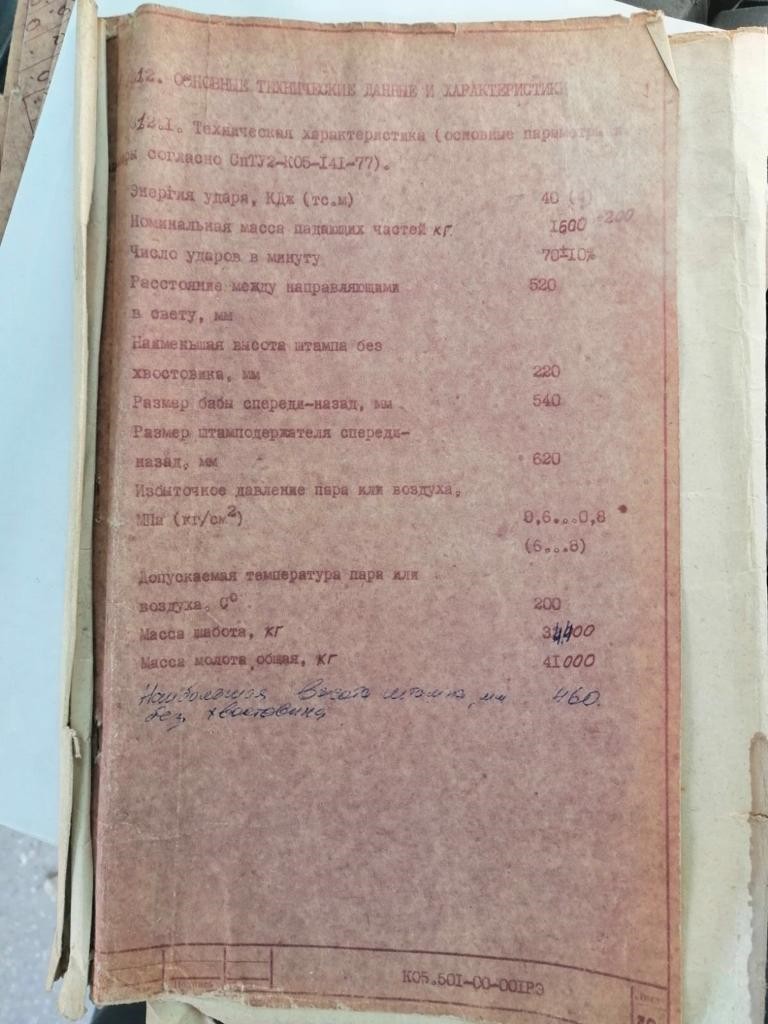 12. ОСНОВНЫЕ ТЕХНИЧЕСКИЕ ДАННЫЕ И ХАРАКТЕРИСТИКИ
12.1. Техническая характеристика (основные параметры и
согласно СпТУ2-К05-141-77).
Энергия удара, КДж (тс.м) 40 (4)
Номинальная масса падающих частей кг 1600 +200
Число ударов в минуту 70±10%
Расстояние между направляющими 520
в свету, мм
Наименьшая высота штампа без
хвостовика, мм 220
Размер бабы спереди-назад, мм 540
Размер штамподержателя спереди-
назад, мм 620
Избыточное давление пара или воздуха,
МПа (кг/см²) 0,6...0,8
(6...8)
Допускаемая температура пара или
воздуха, С° 200
Масса шабота, кг 34400
Масса молота общая, кг 41000
Наибольшая высота штампа, мм 460.
без хвостовика
К05.501-00-001РЭ